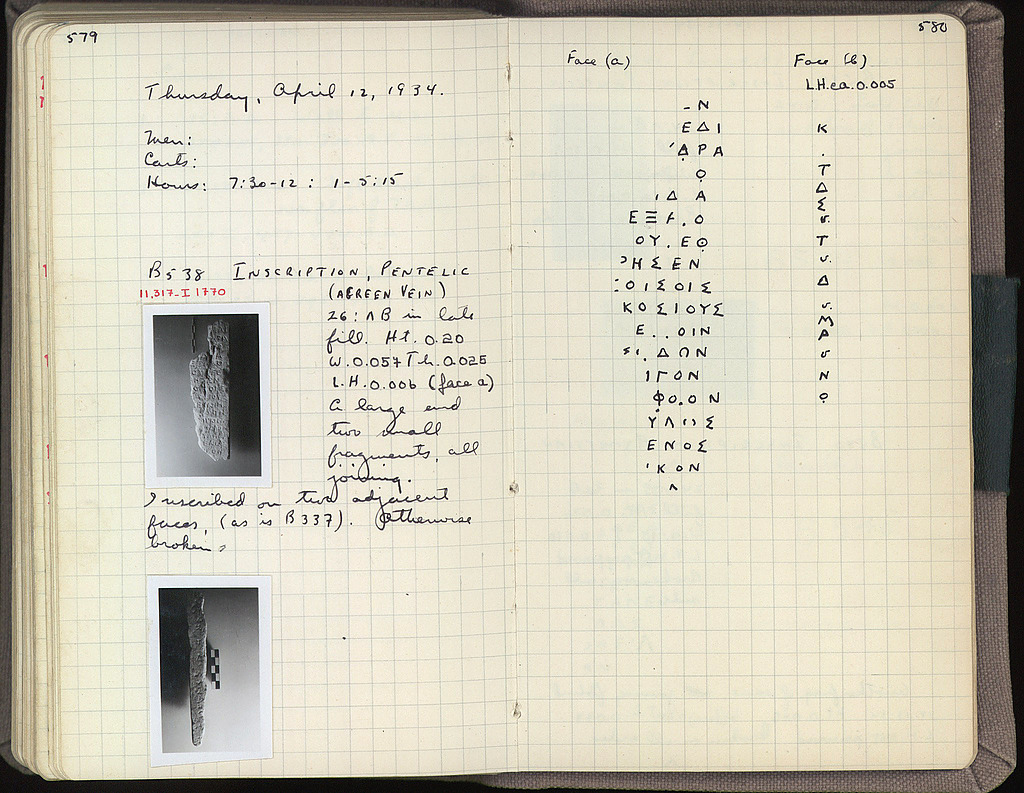 579
Thursday, April 12, 1934.
Men:
Carts:
Hours: 7:30-12 : 1-5:15
B538 INSCRIPTION, PENTELIC
11,317-I 1770
(A GREEN VEIN)
26: ΛB in late
fill. Ht. 0.20
W. 0.057 Th. 0.025
L.H. 0.006 (face a)
A large and
two small
fragments, all
joining.
Inscribed on two adjacent
faces, (as is B337). Otherwise
broken.
580
Face (a)
– Ν
Ε Δ Ι
Δ̣ Ρ Α
Ο̣
Ι Δ Α
Ο Υ . Ε Θ
Η Σ Ε Ν
Ο Ι Σ Ο Ι Σ
Κ Ο Σ Ι Ο Υ Σ
Ε . . Ο Ι Ν
Ι Γ Ο Ν
Φ Ο . Ο Ν
Ε Ν Ο Σ
' Κ Ο Ν
Λ
Face (b)
L.H. ca. 0.005
Κ
.
Τ
Δ
Σ
Τ
Δ
Μ
Ν
Ο̣